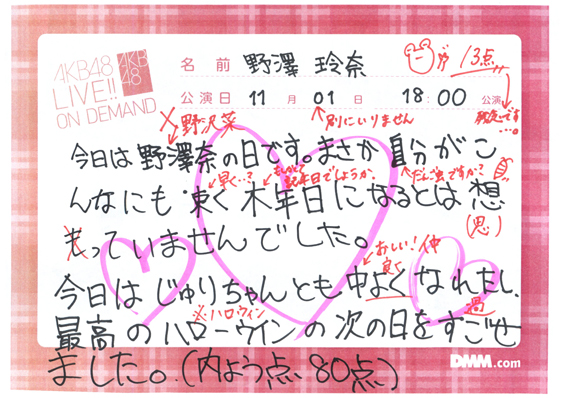 AKB48
LIVE!!
ON DEMAND
AKB
48
名 前 野澤 玲奈 13点
公演日 11 月 01 日 18:00 公演
野沢菜 別にいりません
今日は野澤奈の日です。まさか自分がこ
早く…?
んなにも束く木年日になるとは想
(思)
もっていませんでした。
おい!仲
良く
今日はじゅりちゃんとも中よくなれたし、
※ハロウィン 過
最高のハローウインの次の日をすごせ
ました。(内よう点、80点)
DMM.com